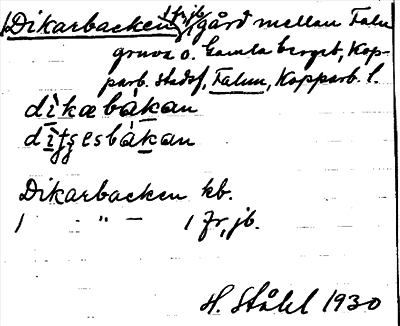 Dikarbacken 1 fr, jb. gård mellan Falu
gruva o. Gamla berget, Kop-
parb. stadsf, Falun, Kopparb. l.
dìkabákan
Dikarbacken kb.
1 - " - 1 fr, jb.
H. Ståhl 1930